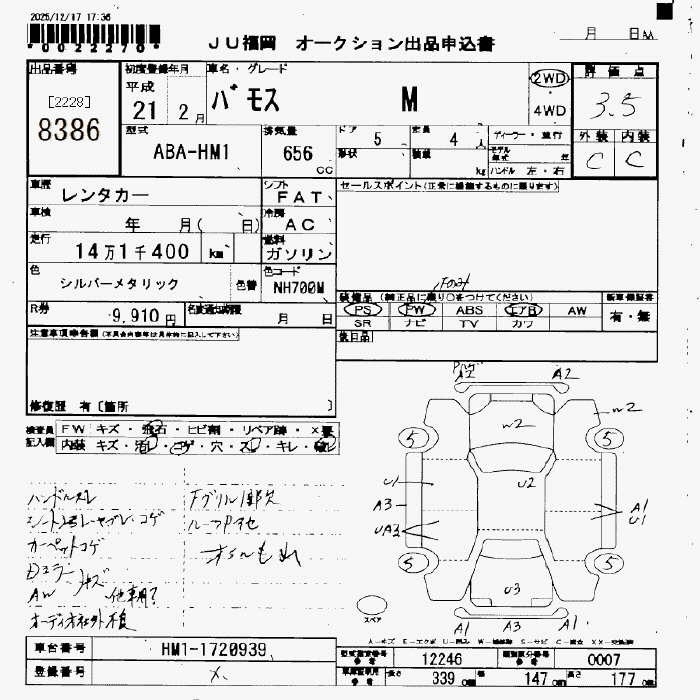 2025/12/17 17:36
*0022270*
JU福岡 オークション出品申込書
月 日
出品番号
[2228]
8386
初度登録年月
平成
21 2月
車名・グレード
バモス M
2WD
4WD
評価点
3.5
外装 内装
C C
型式
ABA-HM1
排気量
656
cc
ドア
5
定員
4
人
形状
積載
kg
ディーラー・並行
モデル
年式
年
ハンドル 左・右
車歴
レンタカー
シフト
FAT
セールスポイント
車検
年 月( 日)
冷房
AC
走行
14万1千400 km
燃料
ガソリン
色
シルバーメタリック
色替
色コード
NH700M
Fのみ
装備品 (純正品に限り○をつけてください)
新車保証書
PS PW ABS エアB AW
有・無
SR ナビ TV カワ
R券
9,910 円
名変通知期限
月 日
後日品
注意事項申告欄
修復歴 有〔箇所 〕
検査員
記入欄
FW キズ・飛石・ヒビ割・リペア跡・×要
内装 キズ・汚レ・コゲ・穴・スレ・キレ・
ハンドルスレ
Fグリル1部欠
カーペットコゲ
オイルもれ
Dミラー
AW キズ
A2 A2
W2
W2
5 5
U1
U2
A3
A1
U1
UA3
5 5
U3
スペア
A1 A3 A1
車台番号
HM1-1720939
登録番号
型式指定番号
12246
類別区分番号
0007
長さ
339
幅
147
高さ
177